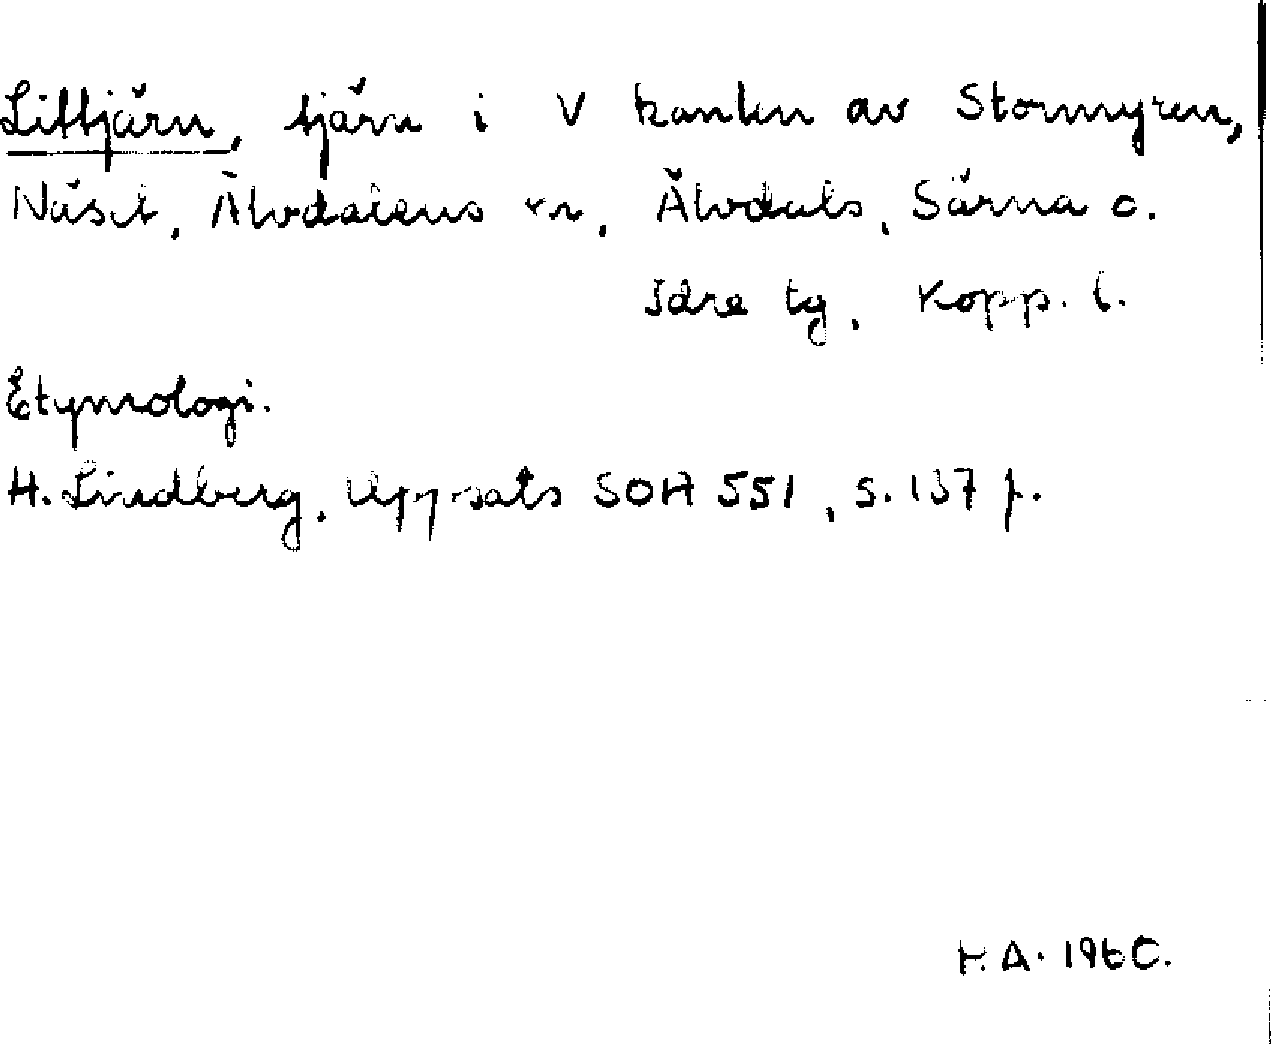 Littjärn, tjärn i V kanten av Stormyren,
Näset, Älvdalens sn, Älvdals, Särna o.
Idre tg, Kopp. l.
Etymologi.
H. Lindberg, Uppsats SOH 551, s. 137 f.
H.A. 1960.